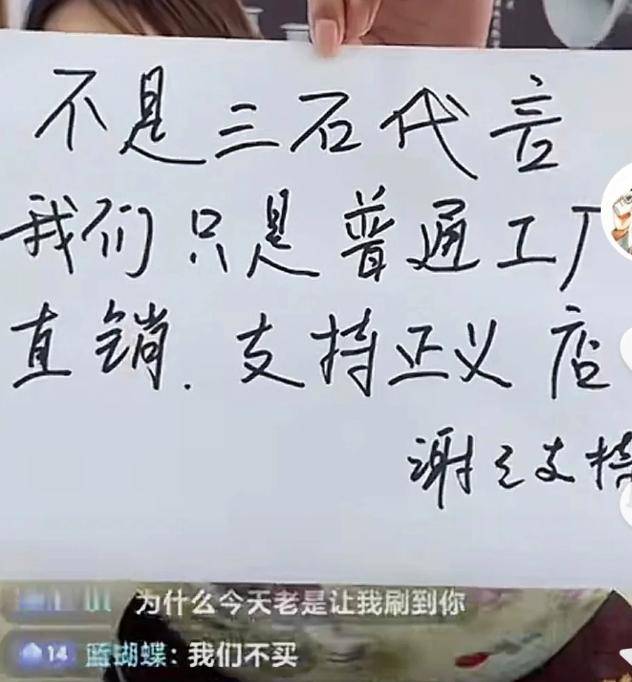 不是三石代言
我们只是普通工厂
直销.支持正义店
谢谢支持
为什么今天老是让我刷到你
14 蓝蝴蝶：我们不买